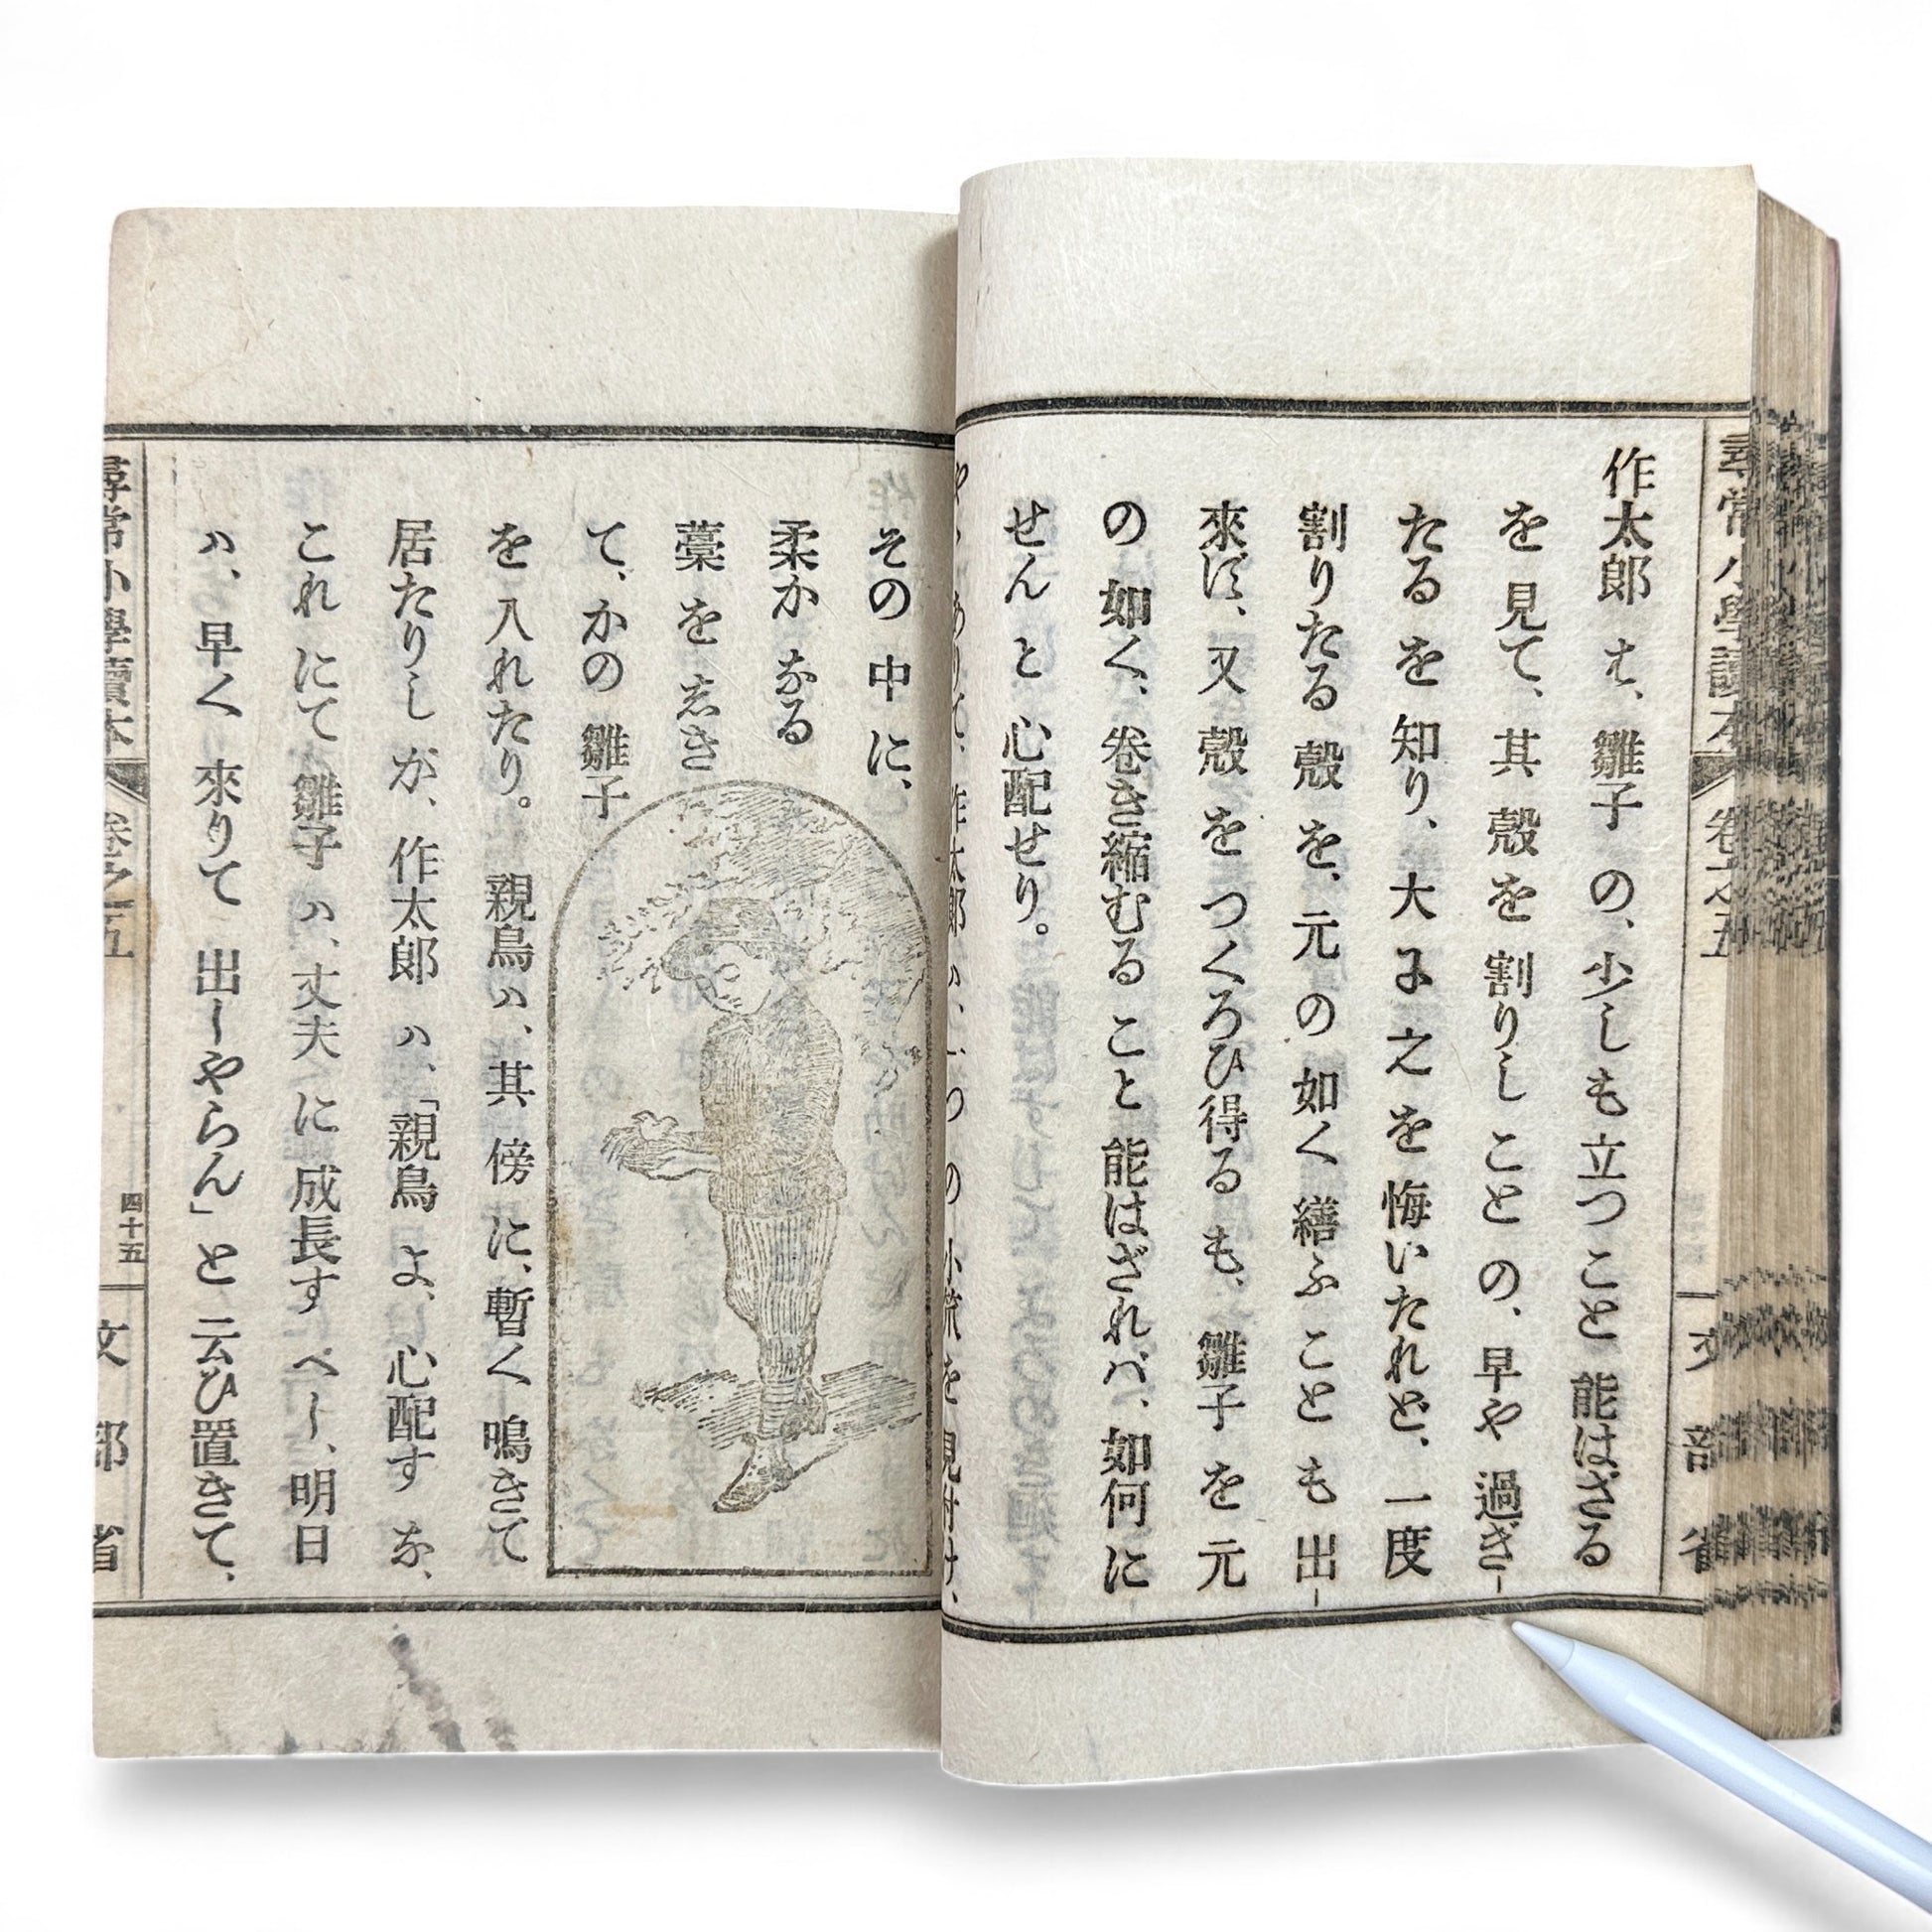 尋常小學讀本 卷之五
文部省
作太郎 は、雛子 の、少しも 立つ こと 能はざる
を 見て、其 殼 を 割りし こと の、早や 過ぎ-
たる を 知り、大 に 之 を 悔いたれど、一度
割りたる 殼 を、元 の 如く 繕ふ こと も 出-
來ず、又 殼 を つくろひ 得る も、雛子 を 元
の 如く、巻き縮むる こと 能はざれバ、如何 に
せん と 心配せり。
その 中 に、
柔か なる
藁 を しき
て、かの 雛子
を 入れたり。 親鳥 ハ、其 傍 に、暫く 鳴きて
居たりし が、作太郎 ハ、「親鳥 よ、心配す な、
これ にて 雛子 ハ、丈夫 に 成長す べし、明日
ハ、早く 來りて 出しやらん」と 云ひ置きて、
尋常小學讀本 卷之五
四十五
文部省